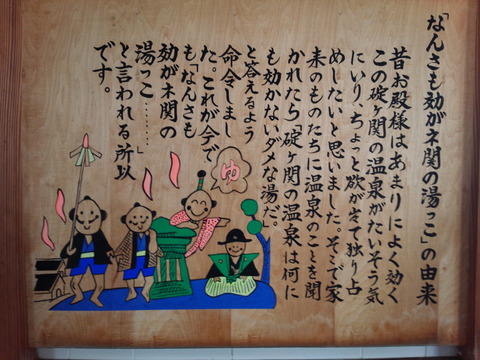 「なんさも効がネ関の湯っこ」の由来
昔お殿様はあまりによく効く
この碇ヶ関の温泉がたいそう気
にいり、ちょっと欲が出て独り占
めしたいと思いました。そこで家
来のものたちに温泉のことを聞
かれたら「碇ヶ関の温泉は何に
も効かないダメな湯だ。」
と答えるよう
命令しまし
た。これが今で
も「なんさも
効がネ関の
湯っこ……」
と言われる所以
です。
ゆ